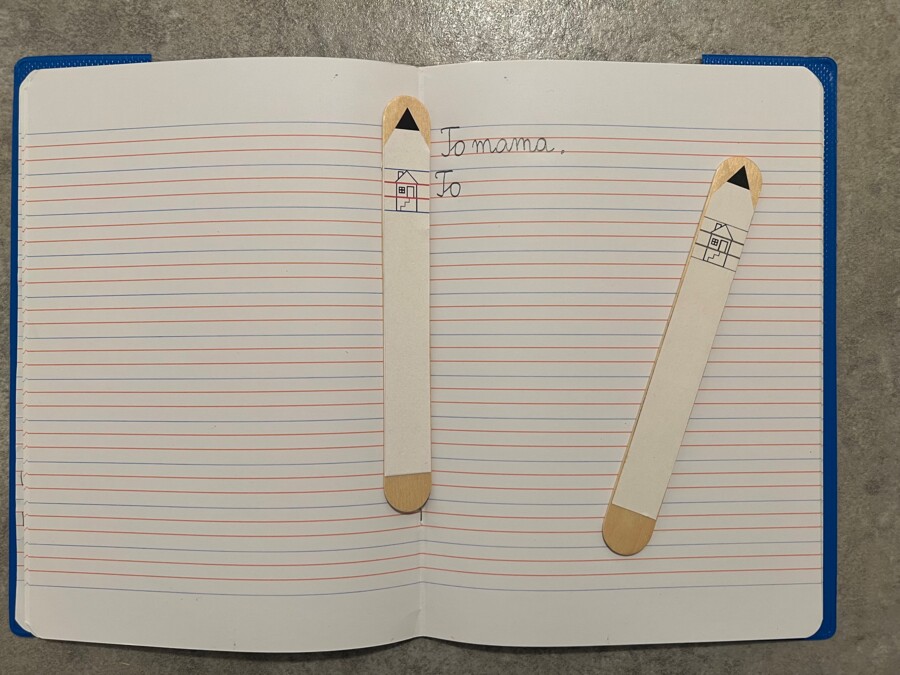 To mama.
To